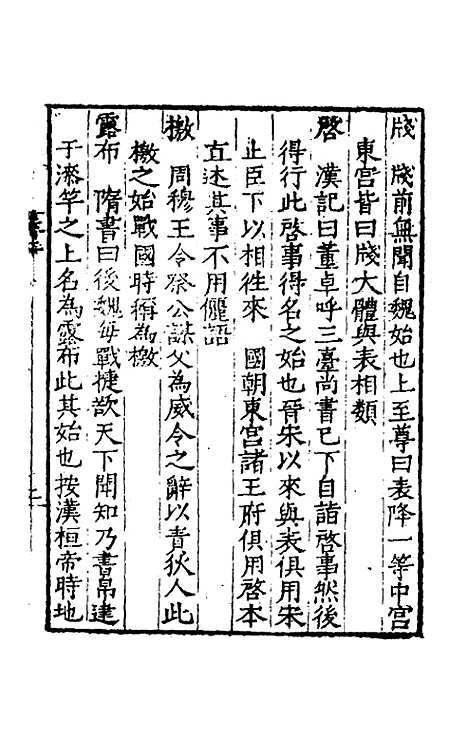 牋　牋前無聞自魏始也上至尊曰表降一等中宮
東宮皆曰牋大體與表相類
啓　漢記曰董卓呼三臺尚書已下自詣啓事然後
得行此啓事得名之始也晉宋以來與表俱用宋
止臣下以相徃來　國朝東宮諸王府俱用啓本
直述其事不用儷語
檄　周穆王令祭公謀父為威令之辭以責狄人此
檄之始戰國時稱為檄
露布　隋書曰後魏每戰捷欲天下聞知乃書帛建
于漆竿之上名為露布此其始也按漢桓帝時地